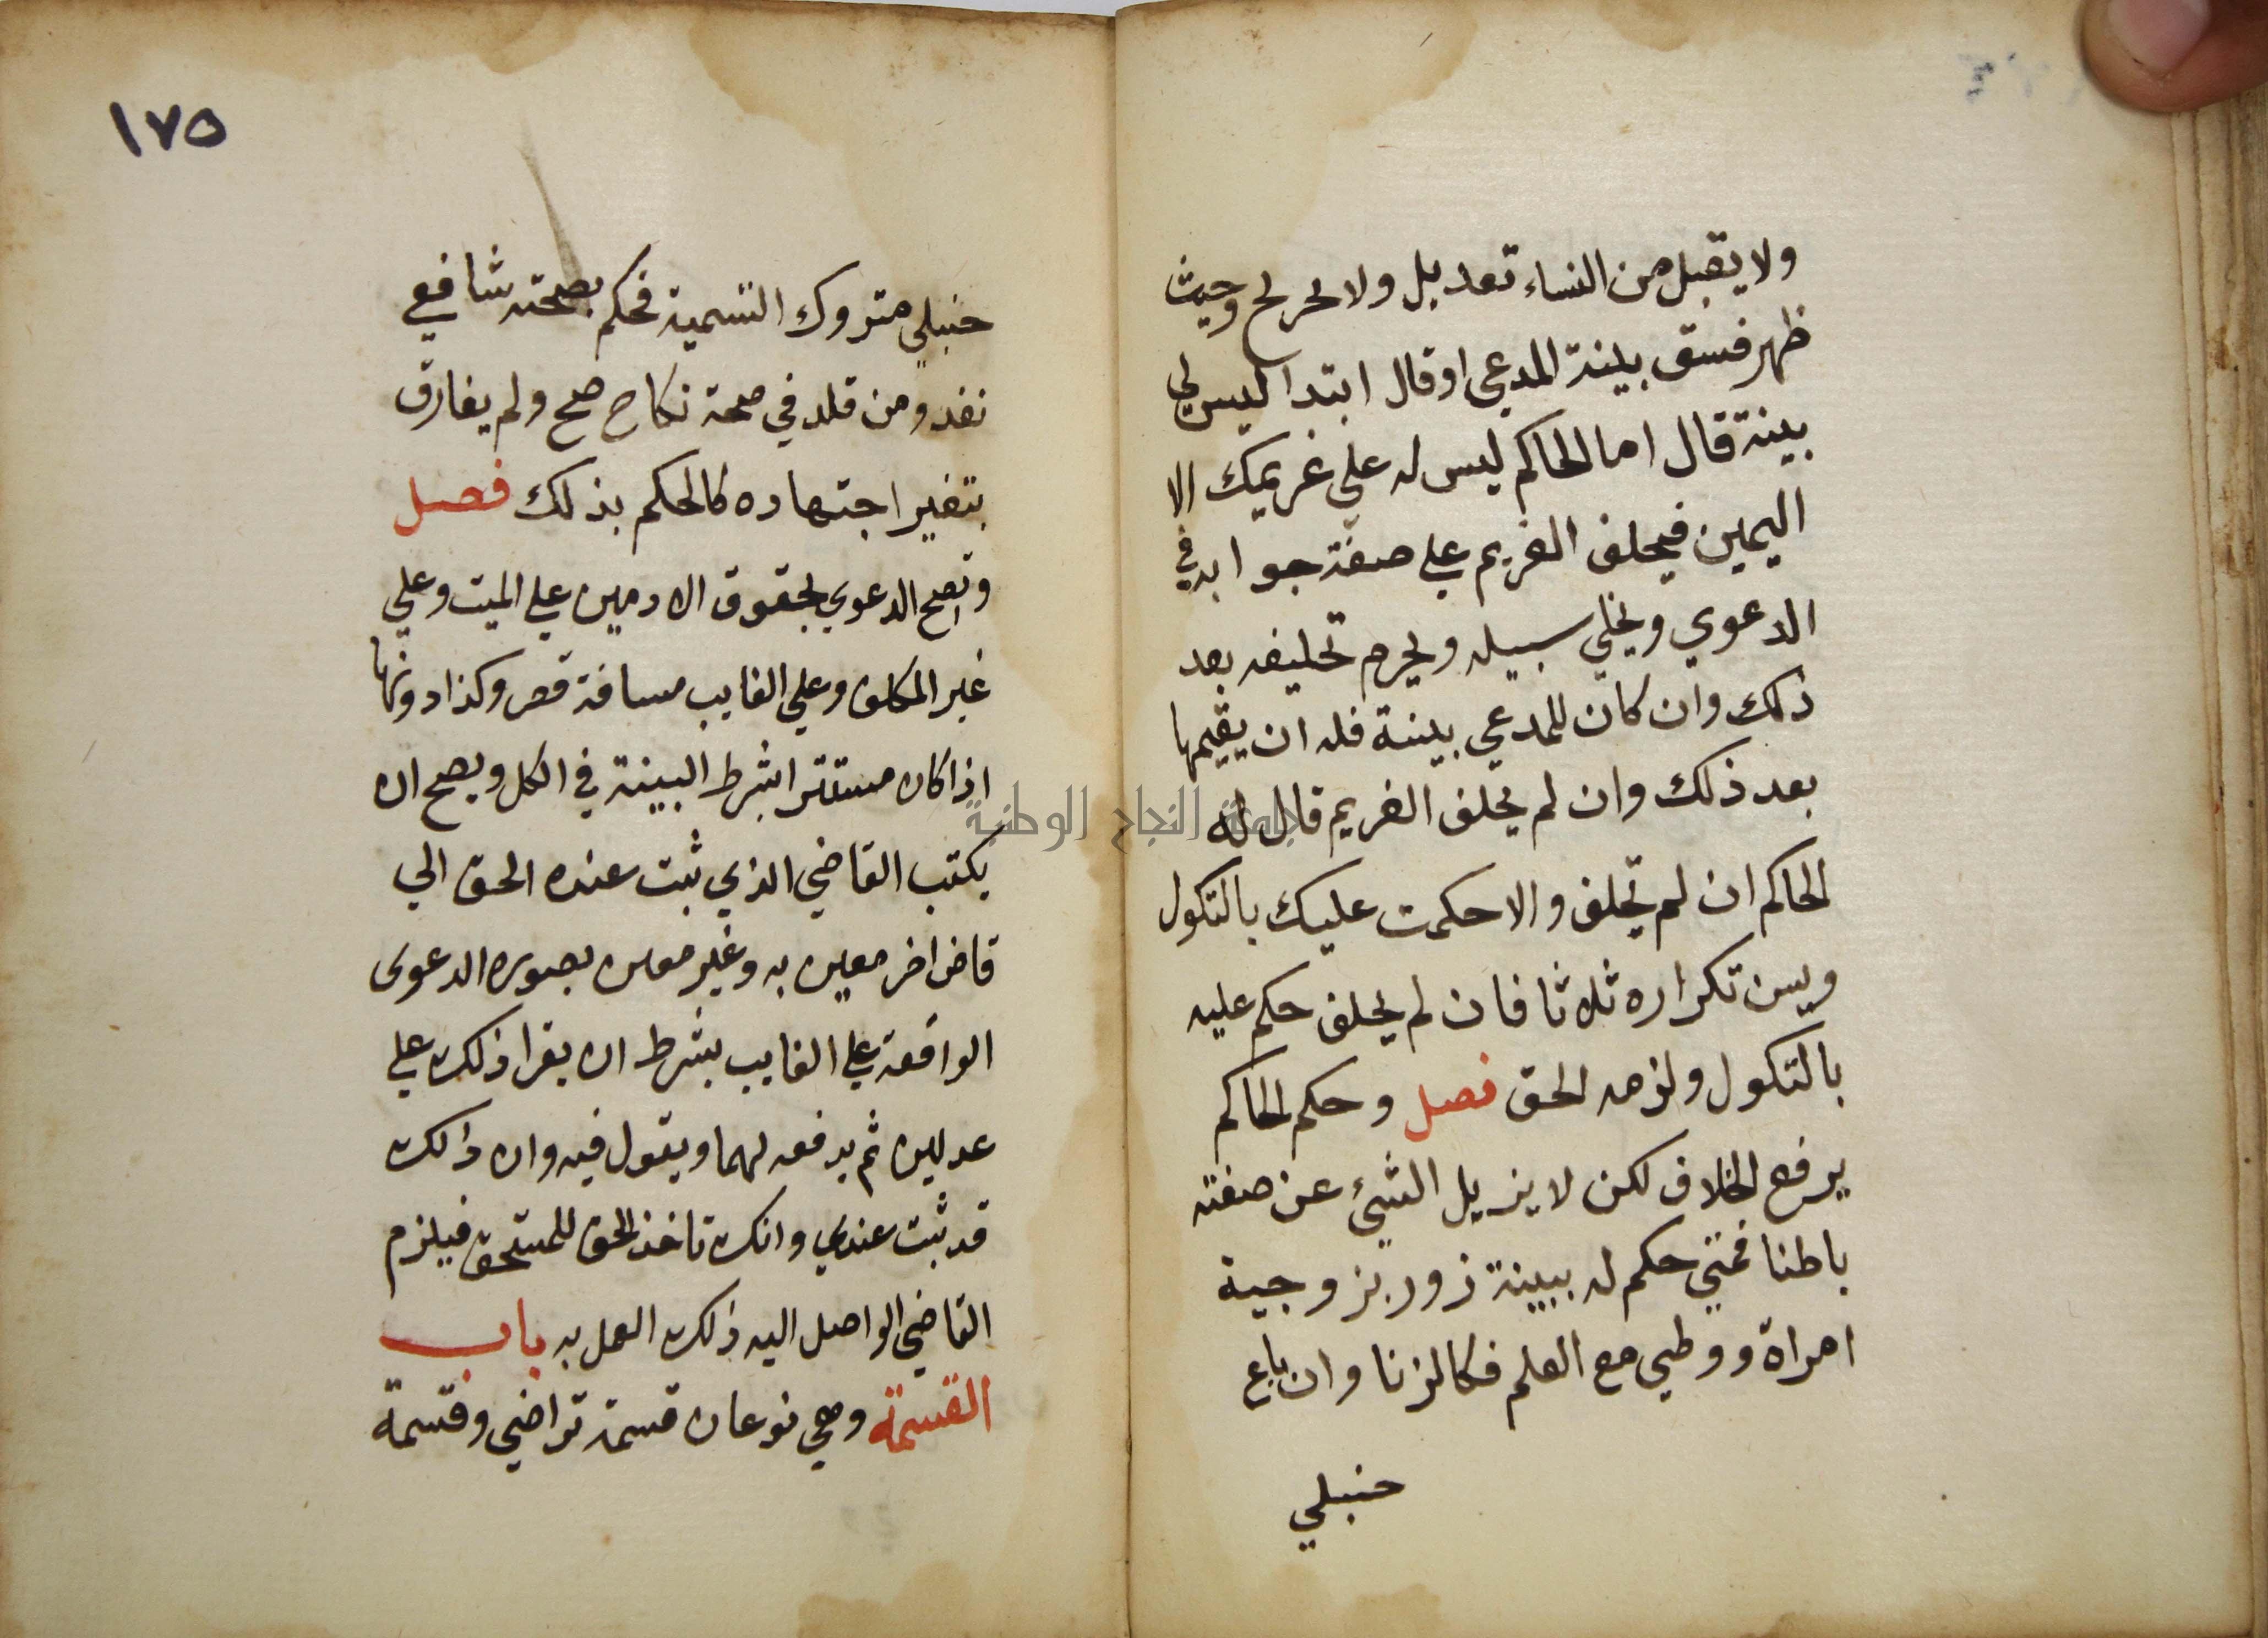 ولا يقبل من النساء تعديل ولا تجريح وحيث
ظهر فسق بينة المدعي او قال ابتدا ليس لي
بينة قال له الحاكم ليس لك علي غريمك الا
اليمين فيحلف الغريم علي صفة جوابه في
الدعوي ويخلي سبيله ويحرم تحليفه بعد
ذلك وان كان للمدعي بينة فله ان يقيمها
بعد ذلك وان لم يحلف الغريم قال له
الحاكم ان لم تحلف والا حكمت عليك بالنكول
ويسن تكراره ثلاثا فان لم يحلف حكم عليه
بالنكول ولزمه الحق فصل وحكم الحاكم
يرفع الخلاف لكن لا يزيل الشيء عن صفته
باطنا فمتي حكم له ببينة زور بزوجية
امراة ووطي مع العلم فكالزنا وان باع
حنبلي
١٧٥
حنبلي متروك التسمية فحكم بصحته شافعي
نفذ ومن قلد في صحة نكاح صح ولم يفارق
بتغير اجتهاده كالحكم بذلك فصل
وتصح الدعوي بحقوق الادميين علي الميت وعلي
غير المكلف وعلي الغايب مسافة قصر وكذا دونها
اذا كان مستترا بشرط البينة في الكل ويصح ان
يكتب القاضي الذي ثبت عنده الحق الي
قاض اخر معين به وغير معين بصورة الدعوى
الواقعة علي الغايب بشرط ان يقرا ذلك علي
عدلين ثم يدفعه لهما ويقول فيه وان ذلك
قد ثبت عندي وانك تاخذ الحق للمستحق فيلزم
القاضي الواصل اليه ذلك العمل به باب
القسمة وهي نوعان قسمة تراضي وقسمة
جامعة النجاح الوطنية